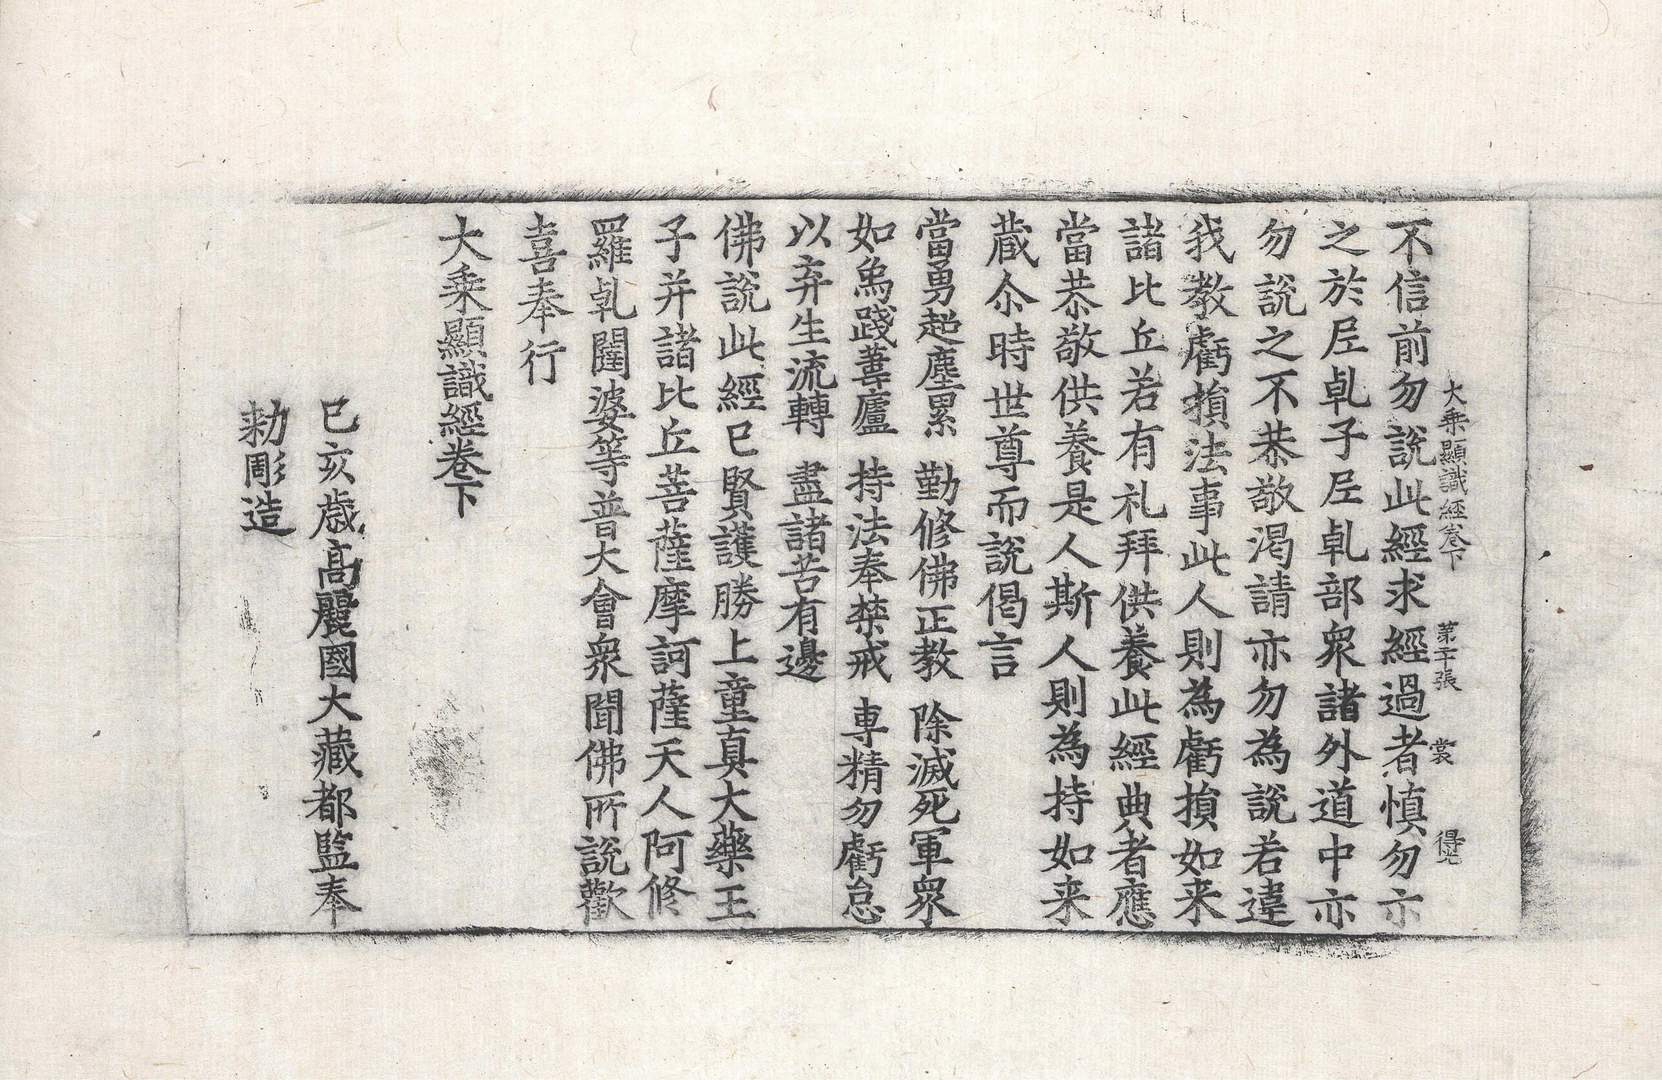 大乗顯識經卷下 第二十張 裳 得光
不信前勿說此經求經過者慎勿示
之於𡰱乹子𡰱乹部衆諸外道中亦
勿說之不恭敬渇請亦勿為說若違
我教虧損法事此人則為虧損如来
諸比丘若有礼拜供養此經典者應
當恭敬供養是人斯人則為持如来
蔵尒時世尊而說偈言
當勇超塵累 勤修佛正教 除滅死軍衆
如象踐葦廬 持法奉禁戒 専精勿虧怠
以弃生流轉 盡諸苦有邊
佛說此經已賢護勝上童真大藥王
子并諸比丘菩薩摩訶薩天人阿修
羅乹闥婆等普大會衆聞佛所說歡
喜奉行
大乗顯識經卷下
己亥歳高麗國大藏都監奉
勑彫造